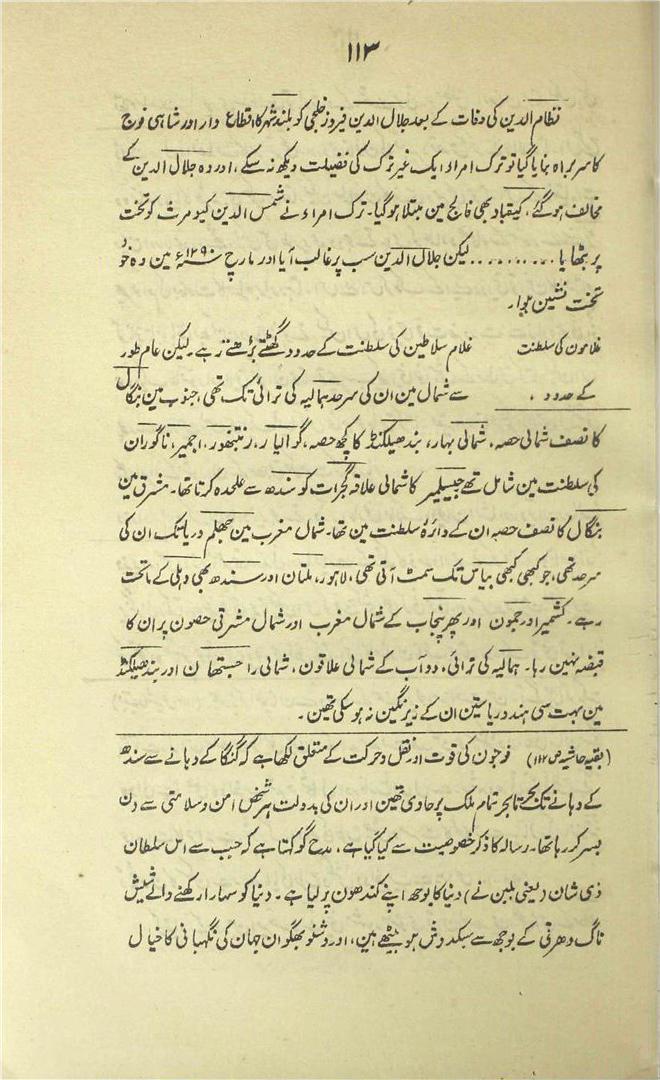 ۱۱۳
نظام الدین کی وفات کے بعد جلال الدین فیروز خلجی کو بلند شہر کا اقطاع دار اور شاہی فوج
کا سربراہ بنایا گیا تو ترک امراء ایک غیر ترک کی فضیلت دیکھ نہ سکے، اور وہ جلال الدین کے
مخالف ہو گئے، کیقباد بھی فالج مین مبتلا ہو گیا۔ ترک امراء نے شمس الدین کیومرث کو تخت
پر بٹھایا .......... لیکن جلال الدین سب پر غالب آیا اور مارچ ۱۲۹۰ء مین وہ خود
تخت نشین ہوا۔
غلامون کی سلطنت غلام سلاطین کی سلطنت کے حدود گھٹتے بڑھتے رہے۔ لیکن عام طور
کے حدود ۰ سے شمال مین ان کی سرحد ہمالیہ کی ترائی تک تھی، جنوب مین بنگال
کا نصف شمالی حصہ، شمالی بہار، بندھیلکنڈ کا کچھ حصہ، گوالیار، رنتھنبور، اجمیر، ناگور ان
کی سلطنت مین شامل تھے جیسلمیر کا شمالی علاقہ گجرات کو سندھ سے علحدہ کرتا تھا۔ مشرق مین
بنگال کا نصف حصہ ان کے دائرۂ سلطنت مین تھا۔ شمال مغرب مین جھلم دریا تک ان کی
سرحد تھی، جو کبھی کبھی بیاس تک سمٹ آتی تھی، لاہور، ملتان اور سندھ بھی دہلی کے ماتحت
رہے۔ کشمیر اور جمون اور پھر پنجاب کے شمال مغرب اور شمال مشرقی حصون پر ان کا
قبضہ نہین رہا۔ ہمالیہ کی ترائی، دوآب کے شمالی علاقون، شمالی راجستھان اور بندھیلکنڈ
مین بہت سی ہندو ریاستین ان کے زیر نگین نہ ہو سکی تھین۔
(بقیہ حاشیہ ص ۱۱۲) فوجون کی قوت اور نقل و حرکت کے متعلق لکھا ہے کہ گنگا کے دہانے سے سندھ
کے دہانے تک بحر تا بحر تمام ملک پر حاوی تھین اور ان کی بدولت ہر شخص امن و سلامتی سے دن
بسر کر رہا تھا۔ رسالہ کا ذکر خصوصیت سے کیا گیا ہے، مدح گو کہتا ہے کہ جب سے اس سلطان
ذی شان (یعنی بلبن نے) دنیا کا بوجھ اپنے کندھون پر لیا ہے۔ دنیا کو سہارا رکھنے والے شیش
ناگ دھرتی کے بوجھ سے سبکدوش ہو بیٹھے ہین، اور وشنو بھگوان جہان کی نگہبانی کا خیال